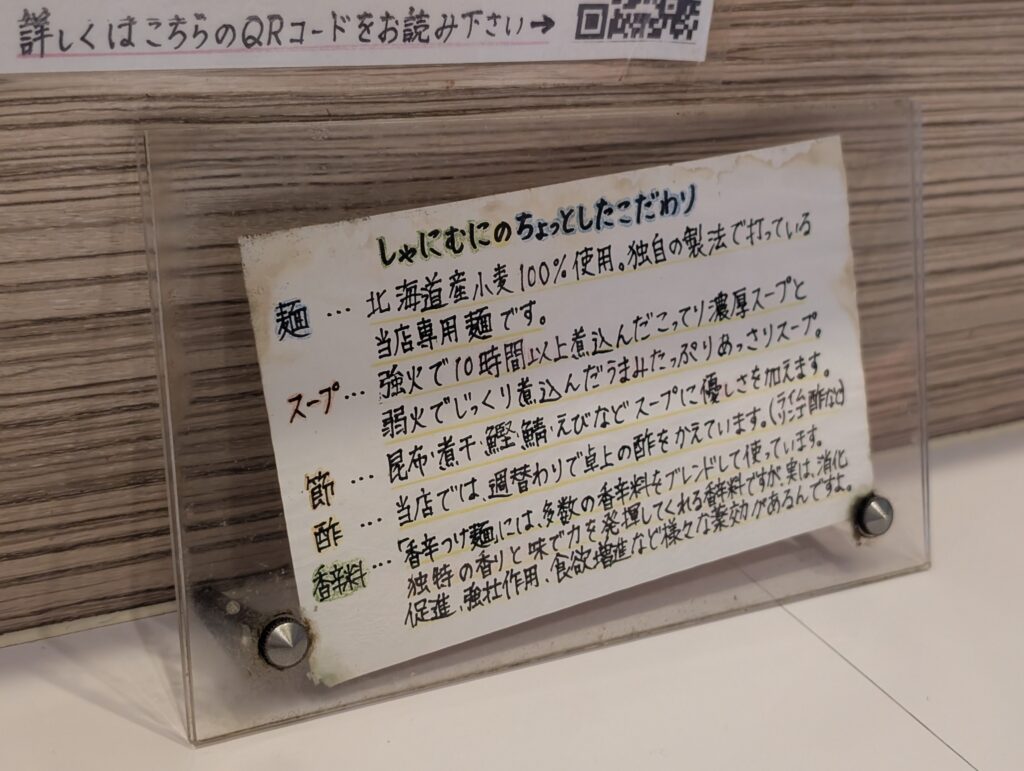 詳しくはこちらのQRコードをお読み下さい→
しゃにむにのちょっとしたこだわり
麺 … 北海道産小麦100%使用。独自の製法で打っている
当店専用麺です。
スープ … 強火で10時間以上煮込んだこってり濃厚スープと
弱火でじっくり煮込んだうまみたっぷりあっさりスープ。
節 … 昆布・煮干・鰹・鯖・えびなどスープに優しさを加えます。
酢 … 当店では、週替わりで卓上の酢をかえています。(ライム リンゴ 酢など)
香辛料 … 「香辛つけ麺」には、多数の香辛料をブレンドして使っています。
独特の香りと味で力を発揮してくれる香辛料ですが、実は、消化
促進、強壮作用、食欲増進など様々な薬効があるんですよ。